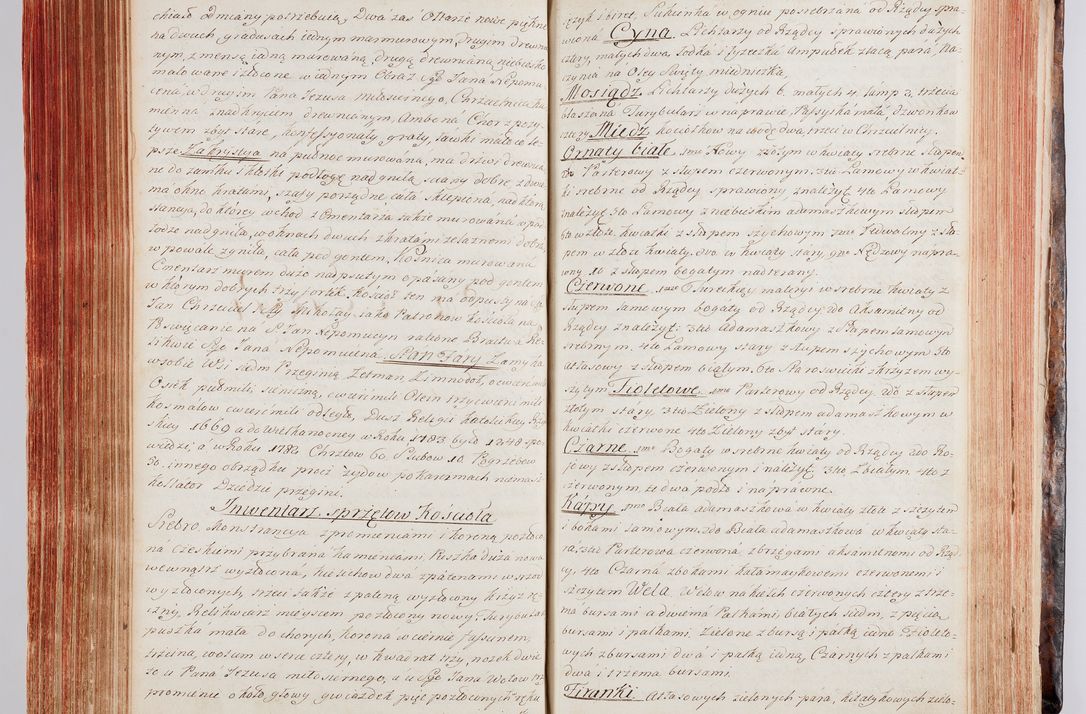 chiało odmiany potrzebuią, Dwa zaś Ołtarze nowe piękne
na dwuch gradusach iednym marmurowym, drugim drewnia
nym, z mensą iedną murowaną, drugą drewnianą niebiesko
malowane i złocone w iednym Obraz S. Jana Nepomu
cena, w drugim Pana Jezusa miłosiernego, Chrzcielnica ka
mienna z nadkryciem drewnianym, Ambona Chor z pozy
tywem zbyt stare, konfesyonały graty, ławki mało co le
psze Zakrystya na pułnoc murowana, ma drzwi drewnia
ne do zamku i kłotki podłogę nadgniłą sciany dobre z dwie
ma oknę kratami, szafy porządne, cała sklepiona, nad którą
stancya, do ktorey wchod z Cmentarza także murowana w pod
łodze nadgniła, w oknach dwuch z kratami żelaznemi dobra,
w powale zgniła, cała pod gontem, Kośnica murowana
Cmentarz murem dużo nadpsutym opasany pod gontem
w którym dobrych trzy fortek, kościół ten ma odpusty na S.
Jan Chrzciciel, S. Mikołay iako Patronow kościoła na
Poswięcanie na S. Jan Nepomucyn
likwie S. Jana Nepomucena. Stan Stary Zamyka
w sobie Wsi siedm Przeginią, Zetman Zimnodoł, o ćwierć mili
Osiek puł mili sieniczną, ćwierć mili Olein trzy ćwierci mili
Kosmałow ćwierć mili odległe, Dusz Religii Katolickiey Rzy
skiey 1660 a do Wielkanocney w Roku 1783 było 1248 spo
wiedzi, a w Roku 1782 Chrztow 60 Slubow 10 Pogrzebow
30. innego obrządku procz żydow po karczmach niemasz
kollator Dziedzic przegini.
Inwentarz sprzętow Kościoła
Srebro, Monstrancya z promieniami i koroną pozłoco
na czeskiemi przybrana kamieniami Puszka duża nowa
wewnątrz wyzłocona, kielichow dwa z patenami wsrzod
wyzłoconych, trzeci także z pateną wyzłocony krzyż rę
czny, Relikwiarz mieyscem pozłocony nowy, Turybularz
puszka mała do chorych, korona w ciernie
trzcina, wotum w serce cztery, w kwadrat trzy, nozek dwie
ze u Pana Jezusa miłosiernego, a u S. Jana Wotow
promienie około głowy, gwiazdek pięć pozłocanych w ręku
ięzyk i biret, Sukienka w ogniu posrebrzana od Rządcy spra
wiona. Cyna. Lichtarzy od Rządcy sprawionych dużych
cztery, małych dwa, Lodka i łyżeczka Ampułek z tacą para, Na
czynia na Oley Swięty, miedniczka,
Mosiądz Lichtarzy dużych 6. małych 4. lamp 3. trzecia
blaszana Turybularz w naprawie, Passyika mała, dzwonkow
cztery, Miedz kociołkow na wodę dwa, trzeci w Chrzcielnicy.
Ornaty białe, 1mo Nowy złotym w kwiaty srebrne słupem
2do Parterowy z słupem czerwonym, 3tio Lamowy w kwiat
ki srebrne od Rządcy sprawiony znależyt: 4to Lamowy
znależyt: 5to Lamowy z niebieskim adamaszkowym słupem
6to w złote kwiatki z słupem szychowym 7mo Jedwabny z słu
pem w złote kwiaty, 8vo w kwiaty stary, 9no Nędzowy napra
wny 10 z słupem bogatym nadterany.
Czerwone 1mo Tureckiey materyi w srebrne kwiaty z
słupem lamowym bogaty od Rządcy 2do Aksamitny od
Rządcy znależyt: 3tio Adamaszkowy z słupem lamowym
srebrnym, 4to Lamowy stary z słupem szychowym 5to
Atłasowy z słupem białym, 6to Staroswiecki z krzyżem wy
szytym Fioletowe. 1mo Parterowy od Rządcy, 2do z słupem
złotym stary, 3tio Zielony z słupem adamaszkowym w
kwiatki czerwone 4to Zielony zbyt stary.
Czarne. 1mo Bogaty w srebrne kwiaty od Rządcy 2do Ro
iowy z słupem czerwonym i należyt: 3tio z białym, 4to z
czerwonym, te dwa podłe i naprawne.
Kappy 1mo Biała adamaszkowa w kwiaty złote z szczytem
i bokami lamowym, 2do Biała adamaszkowa w kwiaty sta
ra, 3tio Parterowa czerwona z brzegami aksamitnemi od Rząd
cy, 4to Czarna z bokami kałamaykowemi czerwonemi i
szczytem Wela. Welow na kielich czerwonych cztery z trze
ma bursami a dwiema Palkami, białych siedm z pięcią
bursami i palkami. Zielone z bursą i palką iedno Fioleto
wych z bursami dwa i palką iedną, Czarnych z palkami
dwa i trzema bursami.
Firanki. Atłasowych zielonych para, kitaykowych zielo